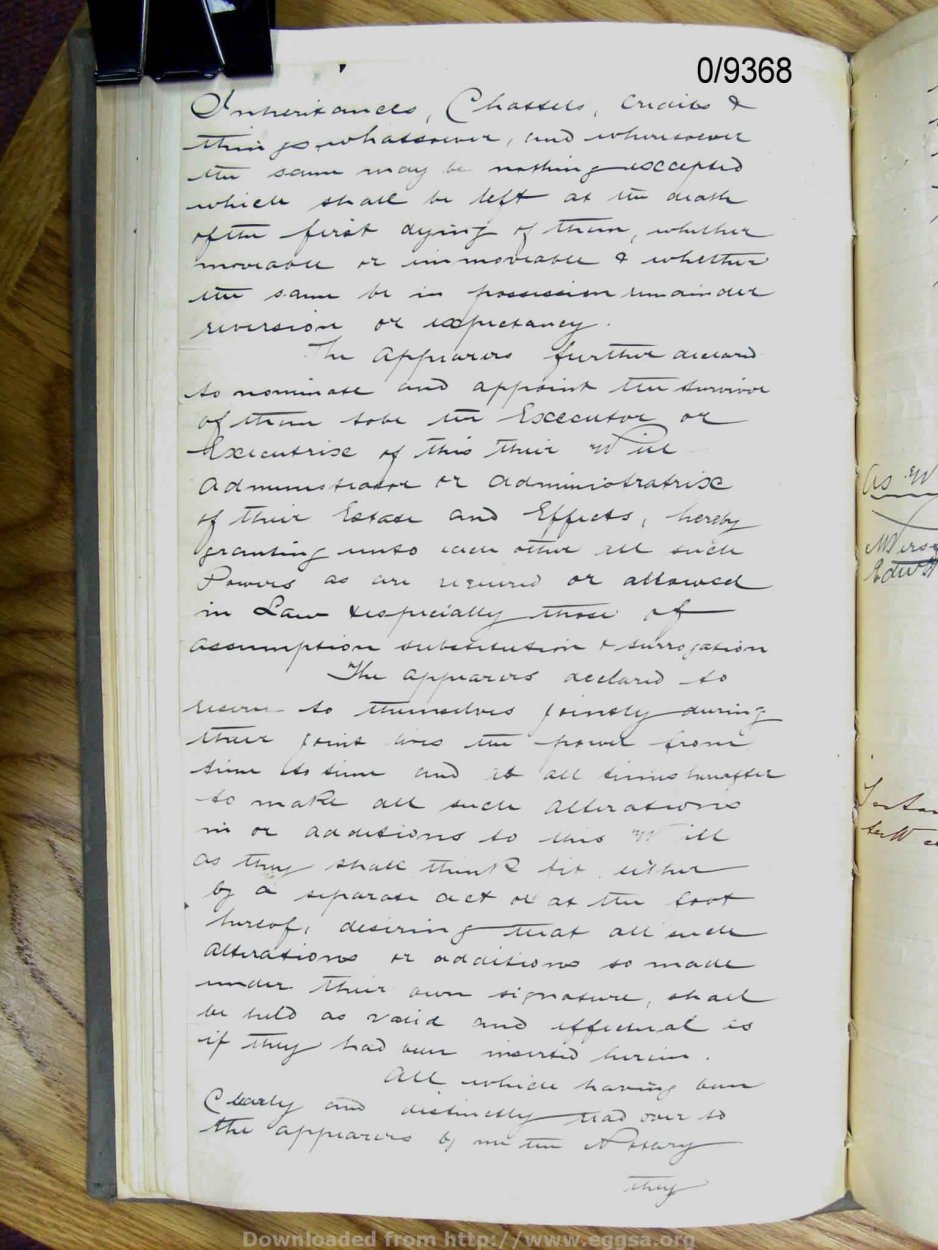 0/9368
Inheritances, Chattels, Credits &
things whatsoever, and wheresoever
the same may be nothing excepted
which shall be left at the death
of the first dying of them, whether
moveable or immoveable & whether
the same be in possession remainder
reversion or expectancy.
The appearers further declared
to nominate and appoint the survivor
of them to be the Executor or
Executrix of this their Will
administrator or administratrix
of their Estate and Effects, hereby
granting unto each other all such
Powers as are required or allowed
in Law & especially those of
assumption substitution & surrogation
The appearers declared to
reserve to themselves jointly during
their joint lives the power from
time to time and at all times hereafter
to make all such alterations
in or additions to this Will
as they shall think fit either
by a separate act or at the foot
hereof, desiring that all such
alterations or additions so made
under their own signature, shall
be held as valid and effectual as
if they had been inserted herein.
All which having been
Clearly and distinctly read over to
the appearers by me the Notary
they
as W
Edw
Downloaded from http://www.eggsa.org